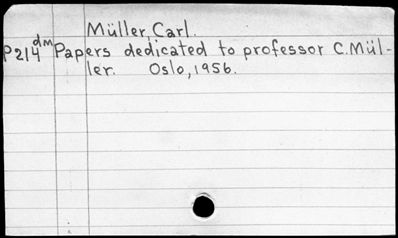 Müller, Carl.
P214dm Papers dedicated to professor C. Mül-
ler. Oslo, 1956.